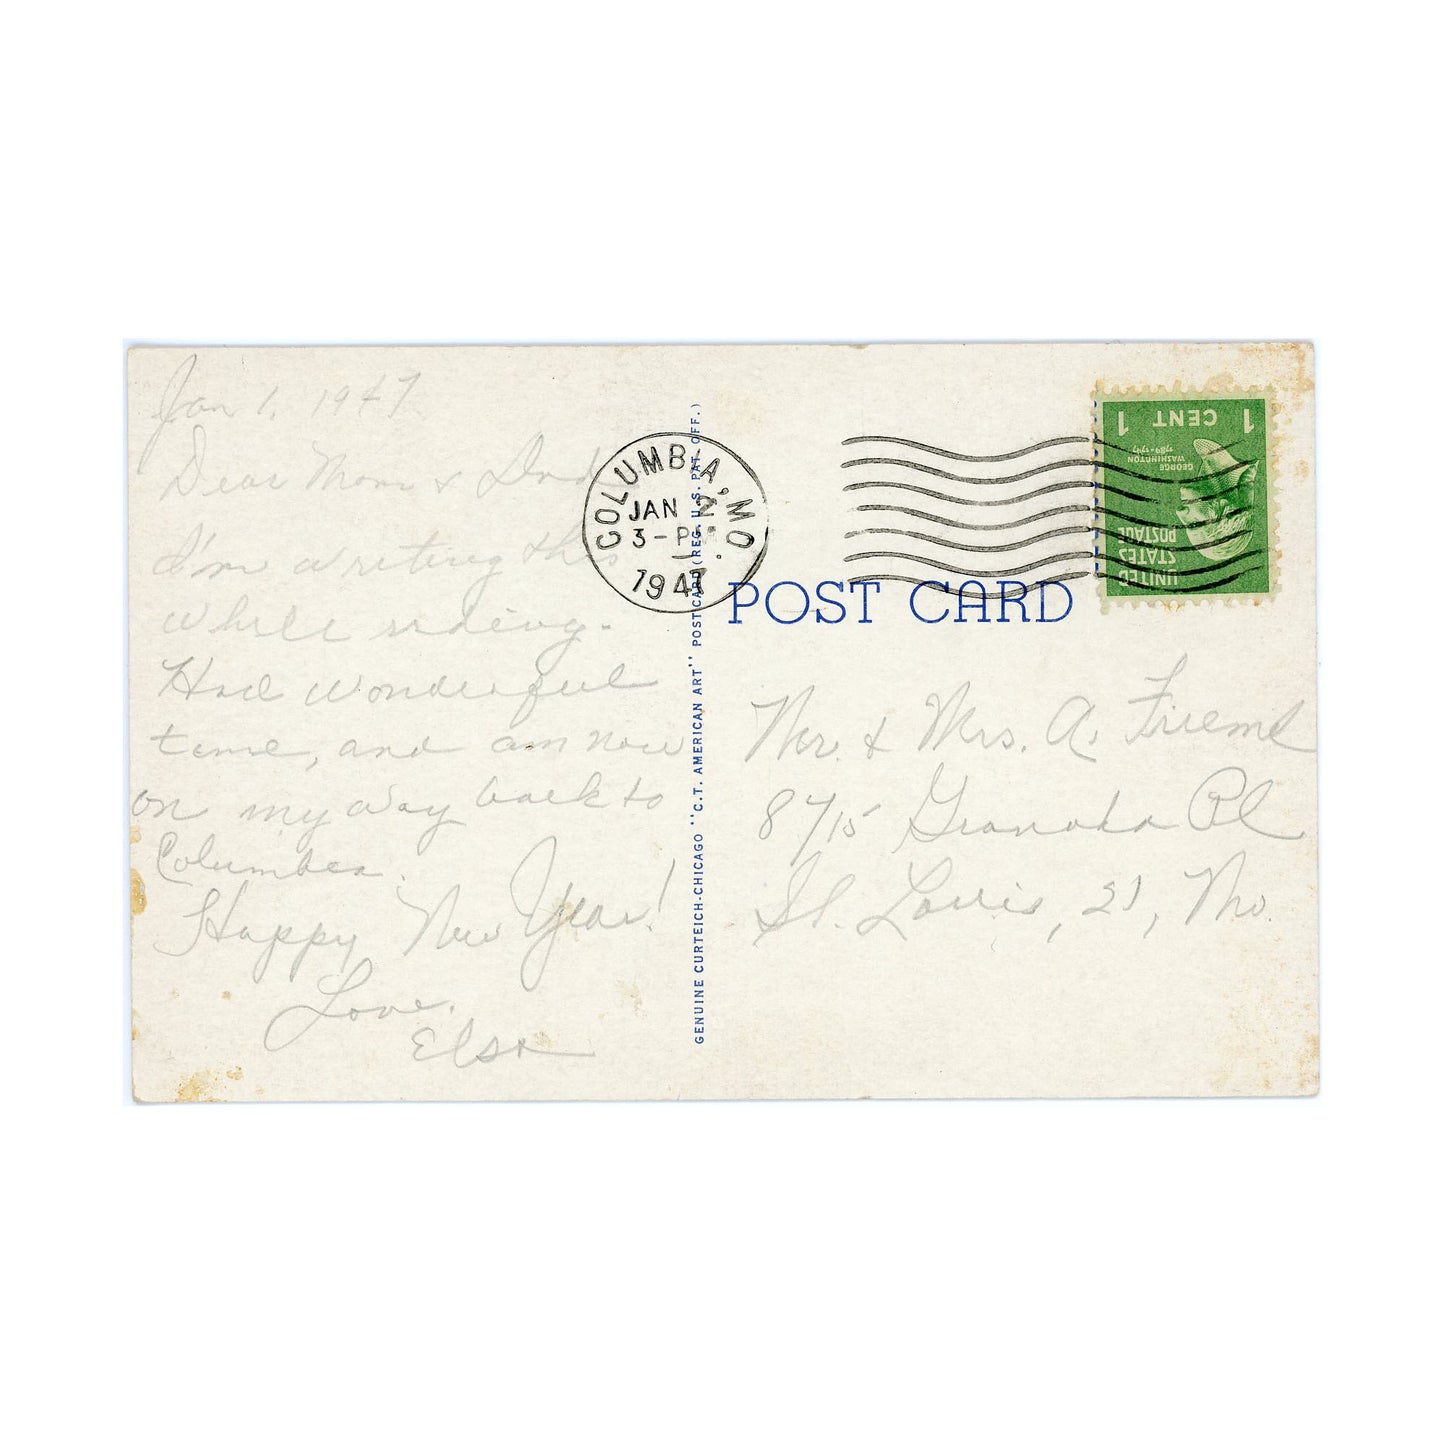 Jan 1, 1947.
Dear Mom & Dad
I'm writing this
while riding.
Had wonderful
time, and am now
on my way back to
Columbia.
Happy New Year!
Love.
Elsa
COLUMBIA, MO.
JAN 2
3-PM
1947
GENUINE CURTEICH-CHICAGO "C.T. AMERICAN ART" POST CARD (REG. U.S. PAT. OFF.)
POST CARD
1 CENT 1
GEORGE
WASHINGTON
1789-1797
UNITED
STATES
POSTAGE
Mr. & Mrs. A.
8715 Pl
St. Louis, 21, Mo.